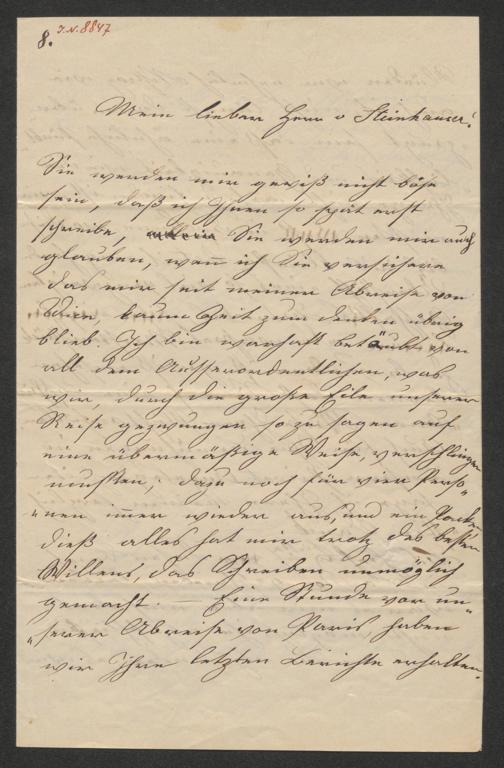 8.
I.N. 8847
Mein lieber Herr v Steinhauser!
Sie werden mir gewiß nicht böse
sein, daß ich Ihnen so spät erst
schreibe, Sie werden mir auch
glauben, wenn ich Sie versichere
das mir seit meiner Abreise von
Wien kaum Zeit zum denken übrig
blieb. Ich bin warhaft betäubt von
all dem Ausserordentlichen, was
wir, durch die große Eile unserer
Reise gezwungen so zu sagen auf
eine übermäßige Weise, verschlingen
mussten; dazu noch für vier Perso"
"nen immer wieder aus, und ein packen
dieß alles hat mir trotz des besten
Willens, das Schreiben unmöglich
gemacht. — Eine Stunde vor un"
"serer Abreise von Paris haben
wir Ihre letzten Berichte erhalten.